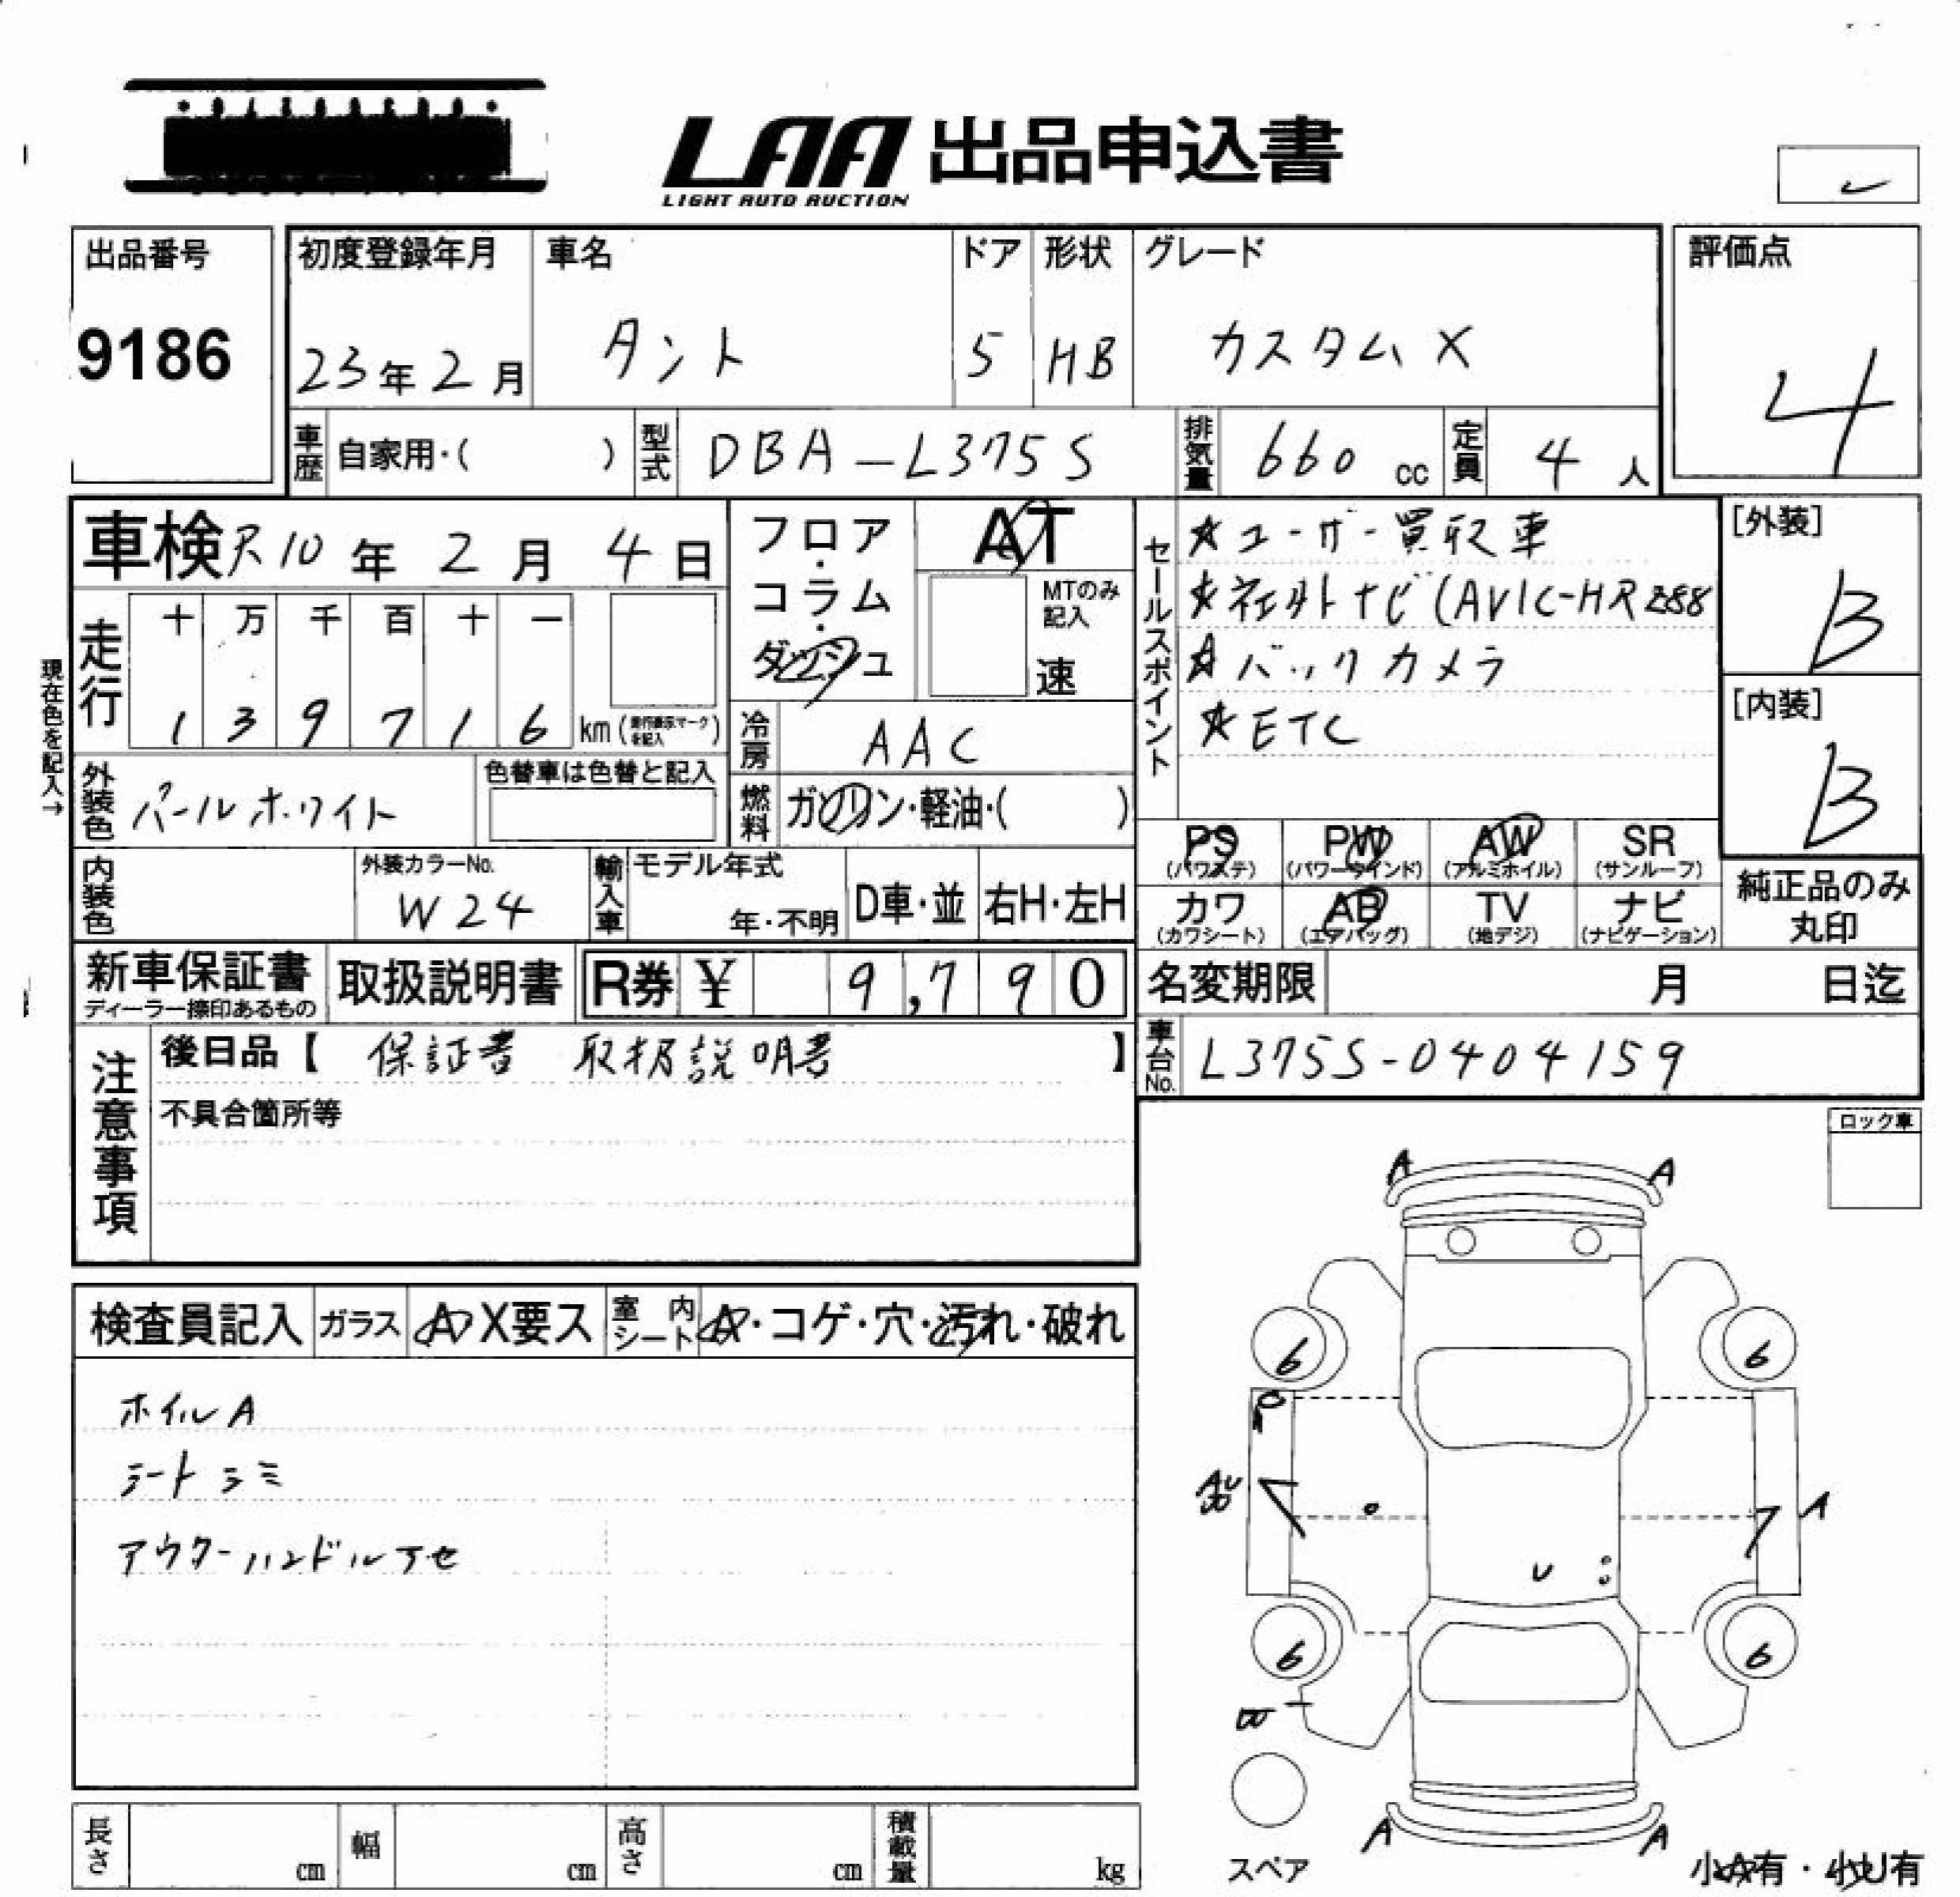 LAA 出品申込書
LIGHT AUTO AUCTION
出品番号
9186
初度登録年月
23年2月
車名
タント
ドア
5
形状
HB
グレード
カスタムX
評価点
4
車歴 自家用・( )
型式 DBA-L375S
排気量 660 cc
定員 4 人
車検 R10年2月4日
フロア・コラム・ダッシュ
AT
MTのみ記入
速
セールスポイント
☆ユーザー買取車
☆社外ナビ(AVIC-HRZ88
☆バックカメラ
☆ETC
[外装]
B
[内装]
B
現在色を記入→
走行
十 万 千 百 十 一
1 3 9 7 1 6 km (走行表示マークを記入)
冷房 AAC
外装色 パールホワイト
色替車は色替と記入
燃料 ガソリン・軽油・( )
PS (パワステ)
PW (パワーウインド)
AW (アルミホイル)
SR (サンルーフ)
カワ (カワシート)
AB (エアバッグ)
TV (地デジ)
ナビ (ナビゲーション)
純正品のみ丸印
内装色
外装カラーNo.
W24
輸入車
モデル年式
年・不明
D車・並
右H・左H
新車保証書
ディーラー捺印あるもの
取扱説明書
R券 ¥ 9,790
名変期限 月 日迄
車台No. L375S-0404159
注意事項
後日品【 保証書 取扱説明書 】
不具合箇所等
ロック車
検査員記入
ガラス A X要ス
室内シート A・コゲ・穴・汚れ・破れ
ホイルA
シートシミ
アウターハンドルアセ
A A
6 6
A
U
6 6
A A
スペア
小A有・小U有
長さ cm
幅 cm
高さ cm
積載量 kg